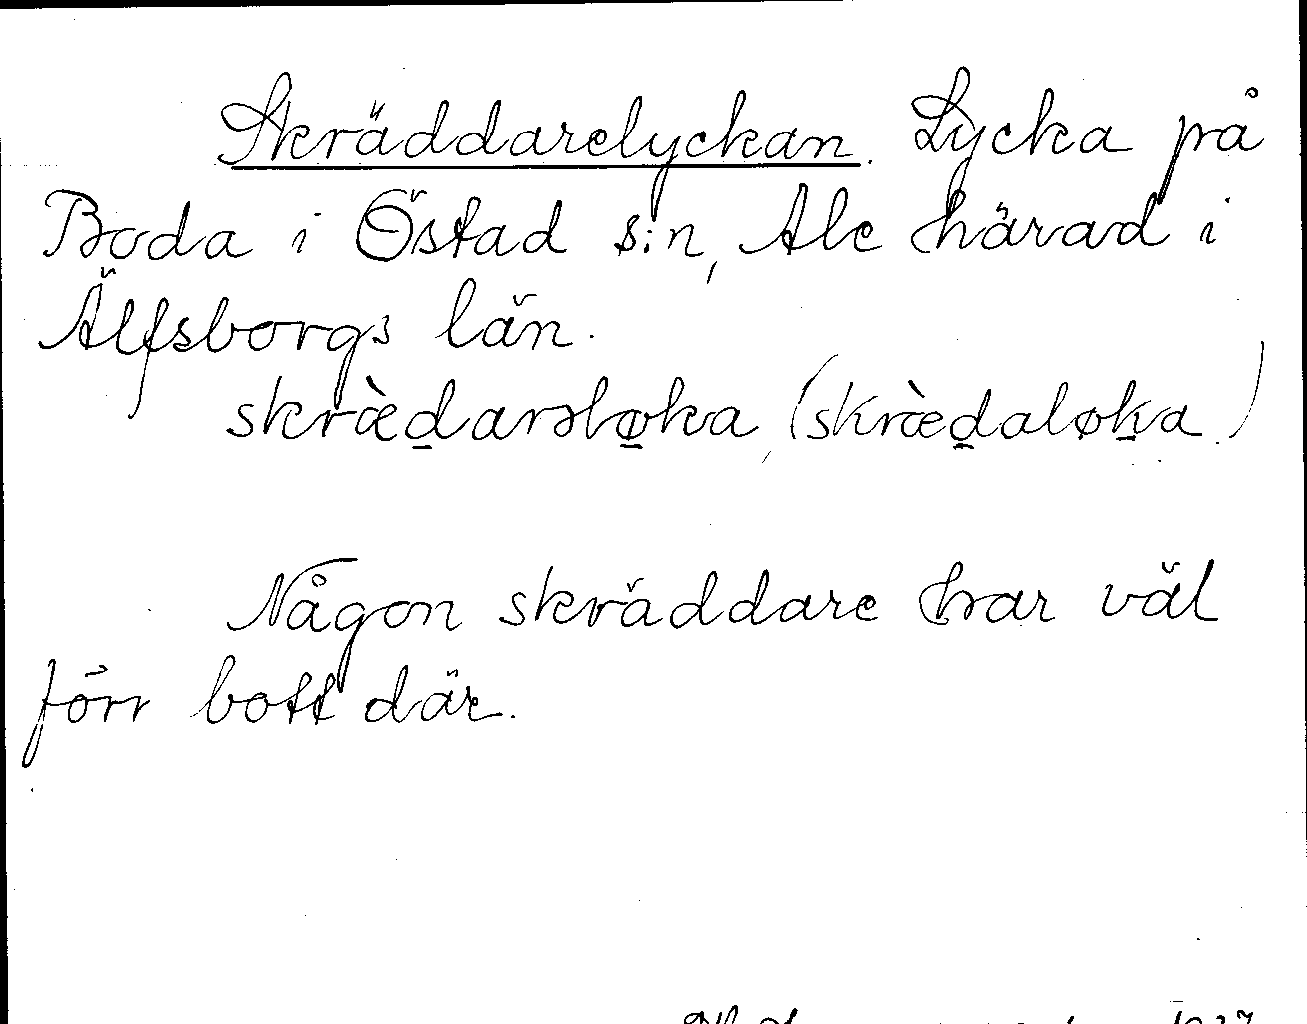 Skräddarelyckan. Lycka på
Boda i Östad s:n, Ale härad i
Älfsborgs län.
skræ̀darsløka, (skræ̀daløka.)
Någon skräddare har väl
förr bott där.